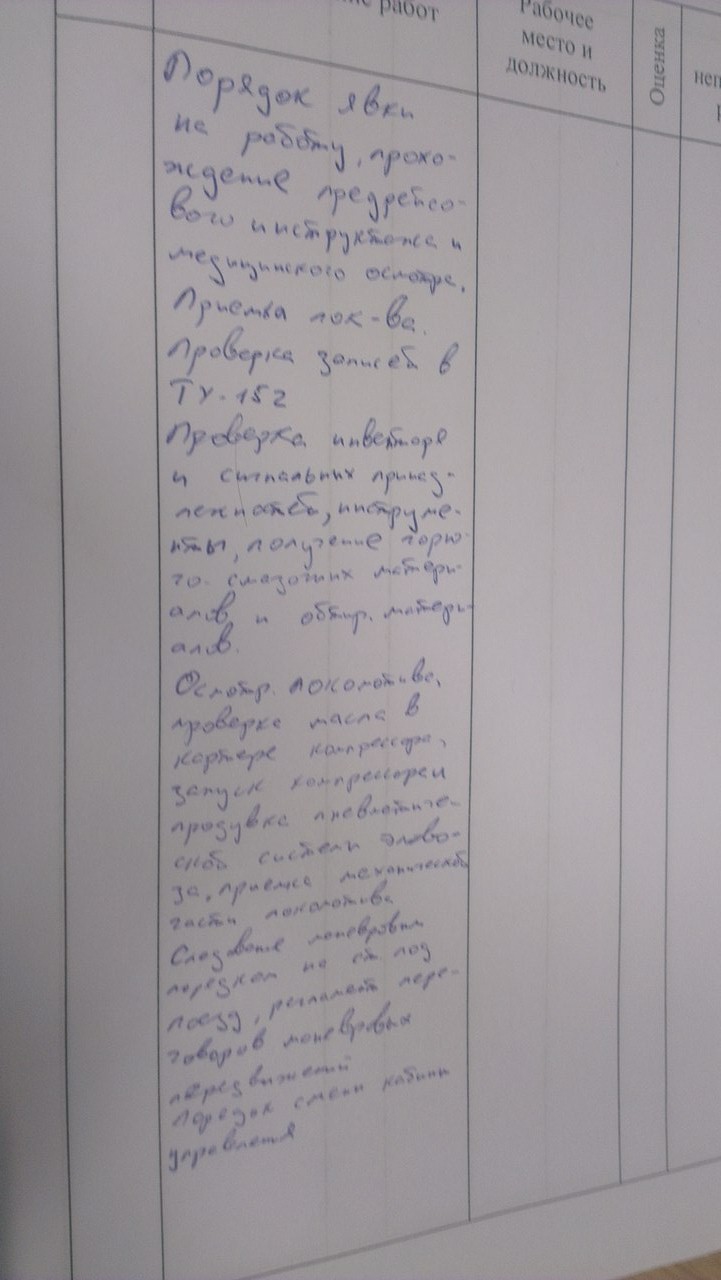 работ
Рабочее
место и
должность
Оценка
неп
Порядок явки
на работу, прохо-
ждение предрейсо-
вого инструктажа и
медицинского осмотра.
Приемка лок-ва.
Проверка записей в
ТУ-152
Проверка инвентаря
и сигнальных принад-
лежностей, инструме-
нты, получение горю-
го-смазочных матери-
алов и обтир. матери-
алов.
Осмотр локомотива,
проверка масла в
картере компрессора,
запуск компрессора и
продувка пневматиче-
ской системы электрово-
за, приемка механической
части локомотива
Следование маневровым
порядком на ст. под
поезд, регламент пере-
говоров маневровых
передвижений
Порядок смены кабины
управления